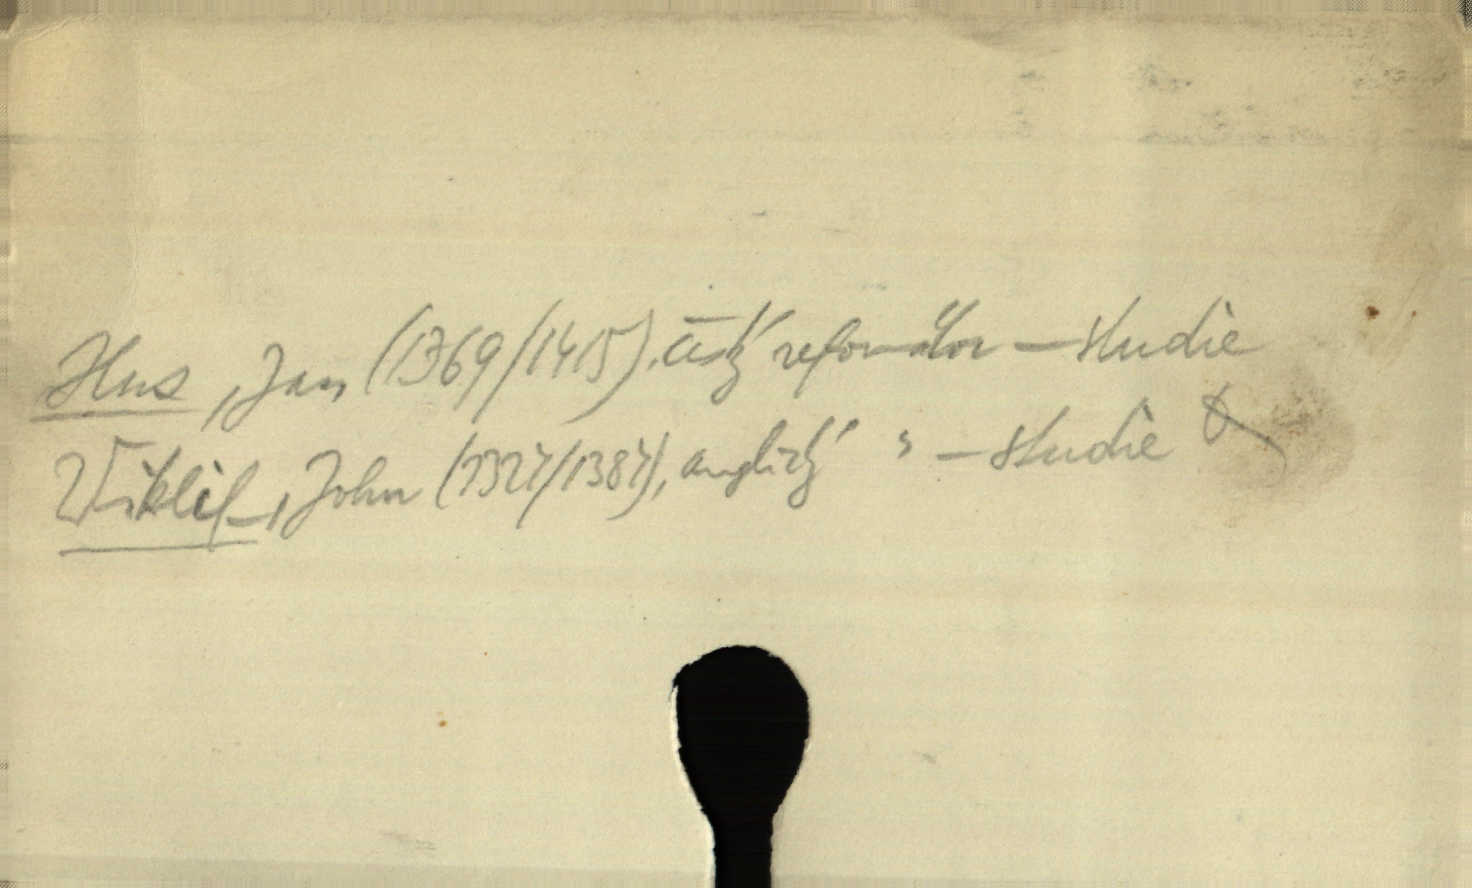 Hus, Jan (1369/1415), český reformátor – studie
Wiklif, John (1324/1384), anglický " – studie